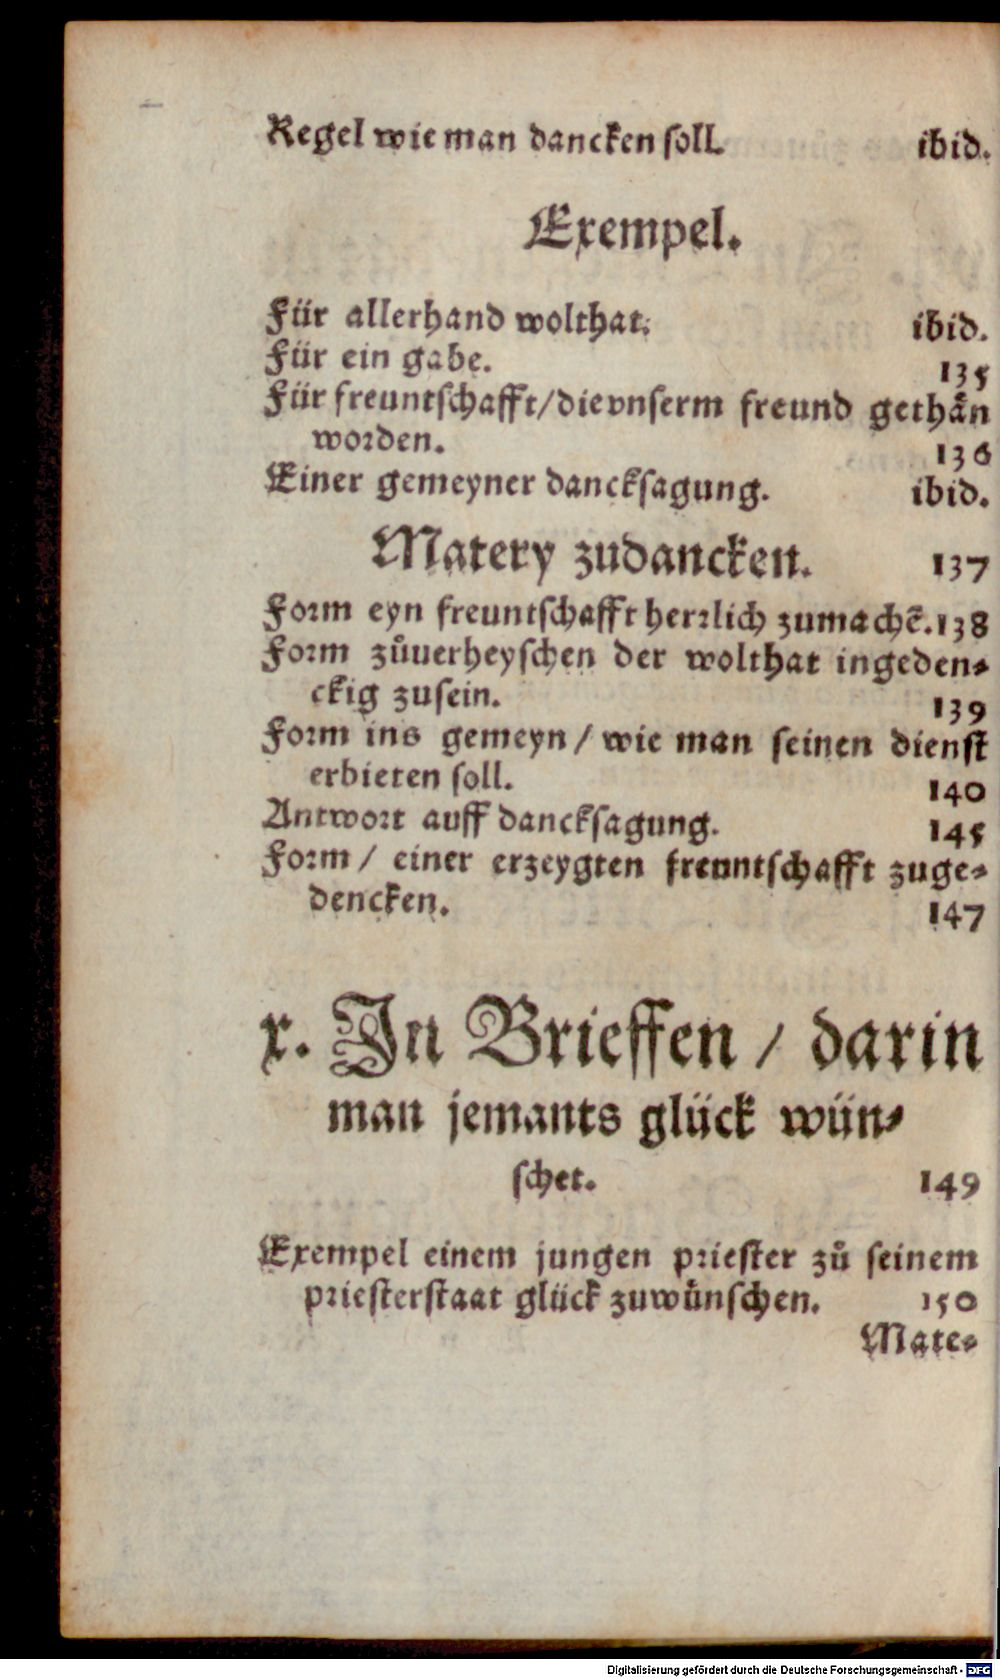 Regel wie man dancken soll. ibid.
Exempel.
Für allerhand wolthat. ibid.
Für ein gabe. 135
Für freuntschafft/die vnserm freund gethån
worden. 136
Einer gemeyner dancksagung. ibid.
Matery zudancken. 137
Form eyn freuntschafft herrlich zumachẽ. 138
Form zůuerheyschen der wolthat ingeden-
ckig zusein. 139
Form ins gemeyn / wie man seinen dienst
erbieten soll. 140
Antwort auff dancksagung. 145
Form / einer erzeygten freuntschafft zuge-
dencken. 147
x. In Brieffen / darin
man jemants glück wün-
schet. 149
Exempel einem jungen priester zů seinem
priesterstaat glück zuwůnschen. 150
Mate-
Digitalisierung gefördert durch die Deutsche Forschungsgemeinschaft - DFG